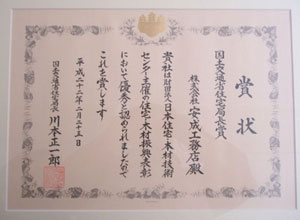 賞状
国土交通省住宅局長賞
株式会社安成工務店殿
貴社は財団法人日本住宅・木材技術
センター主催の住宅・木材振興表彰
において優秀と認められましたので
これを賞します
平成二十二年二月二十三日
国土交通省住宅局長 川本正一郎